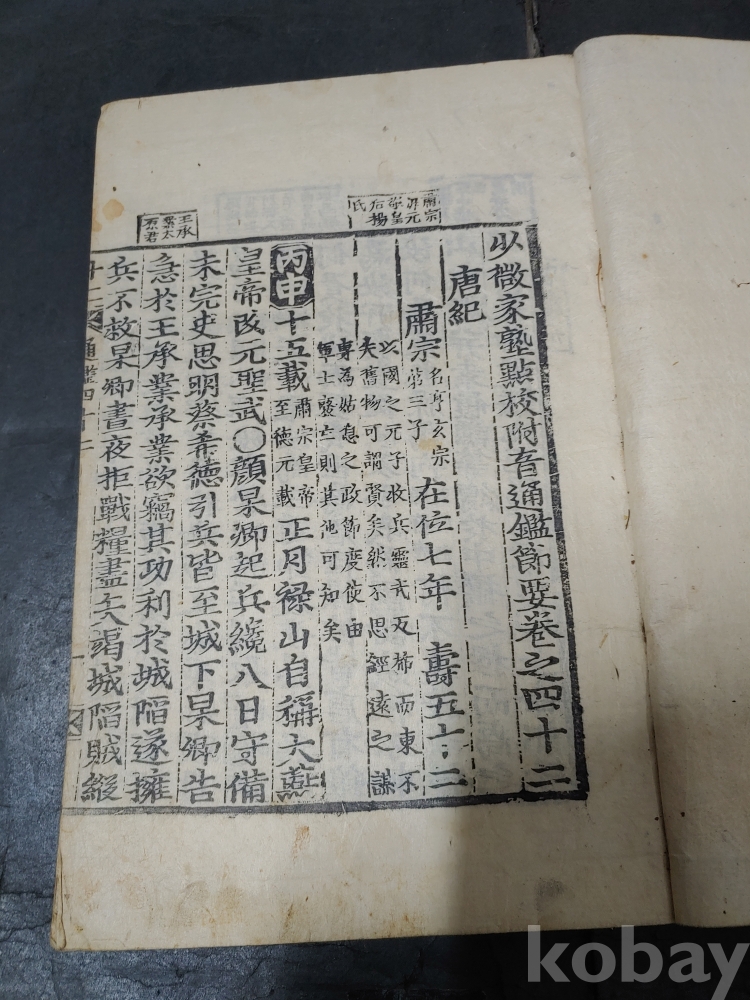 少微家塾點校附音通鑑節要卷之四十二
唐紀
肅宗 名亨玄宗第三子 在位七年 壽五十二
以國之元子收兵靈武反旆而東不
失舊物可謂賢矣然不思經遠之謀
專為姑息之政節度使由
軍士廢亡則其他可知矣
丙申 十五載 肅宗皇帝至德元載 正月祿山自稱大燕
皇帝改元聖武〇顏杲卿起兵纔八日守備
未完史思明蔡希德引兵皆至城下杲卿告
急於王承業承業欲竊其功利於城陷遂擁
兵不救杲卿晝夜拒戰糧盡矢竭城陷賊縱
通鑑四十二
肅宗
皇
后楊
氏
王承
業太
kobay